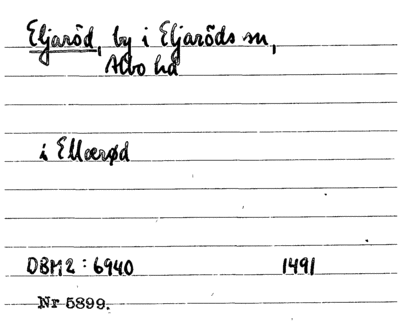 Eljaröd, by i Eljaröds sn,
Albo hd
i Ellærød
DBM2: 6940 1491
Nr 5899.